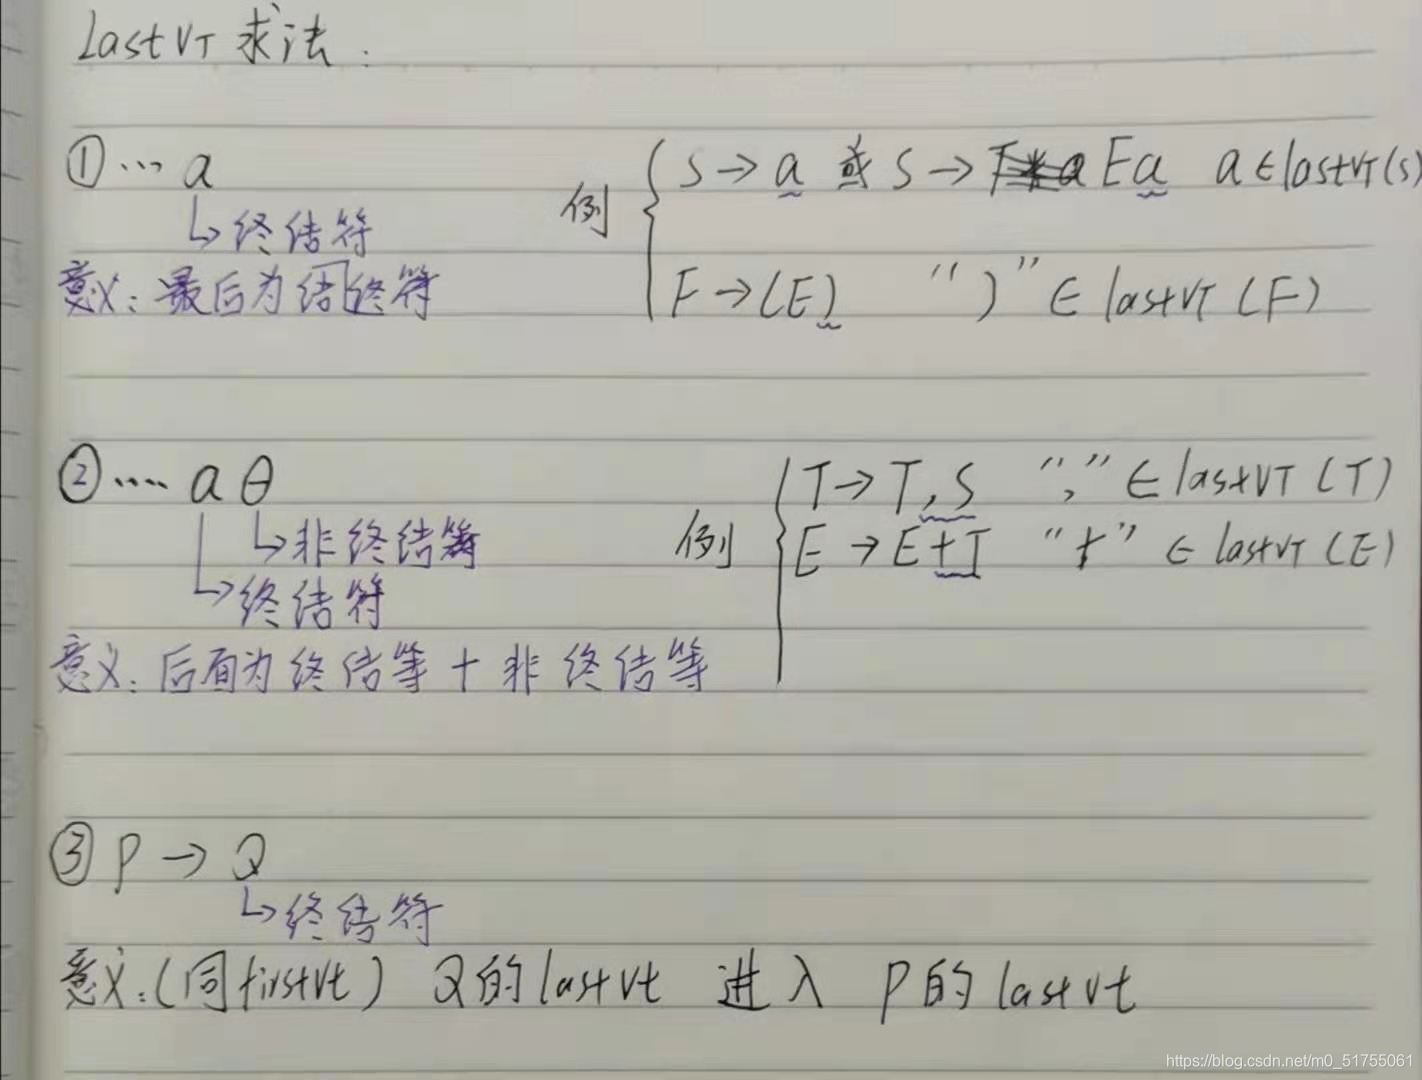 LastVT 求法：
① … a
↳ 终结符
意义：最后为结终符
例
S → a 或 S → Ea a ∈ lastVT(S)
F → (E) “)” ∈ lastVT (F)
② …. a θ
↳ 非终结符
↳ 终结符
意义：后面为终结等 + 非终结等
例
T → T,S “,” ∈ lastVT (T)
E → E+T “+” ∈ lastVT (E)
③ P → Q
↳ 终结符
意义：(同firstVt) Q的lastVt 进入 P的lastVt
https://blog.csdn.net/m0_51755061